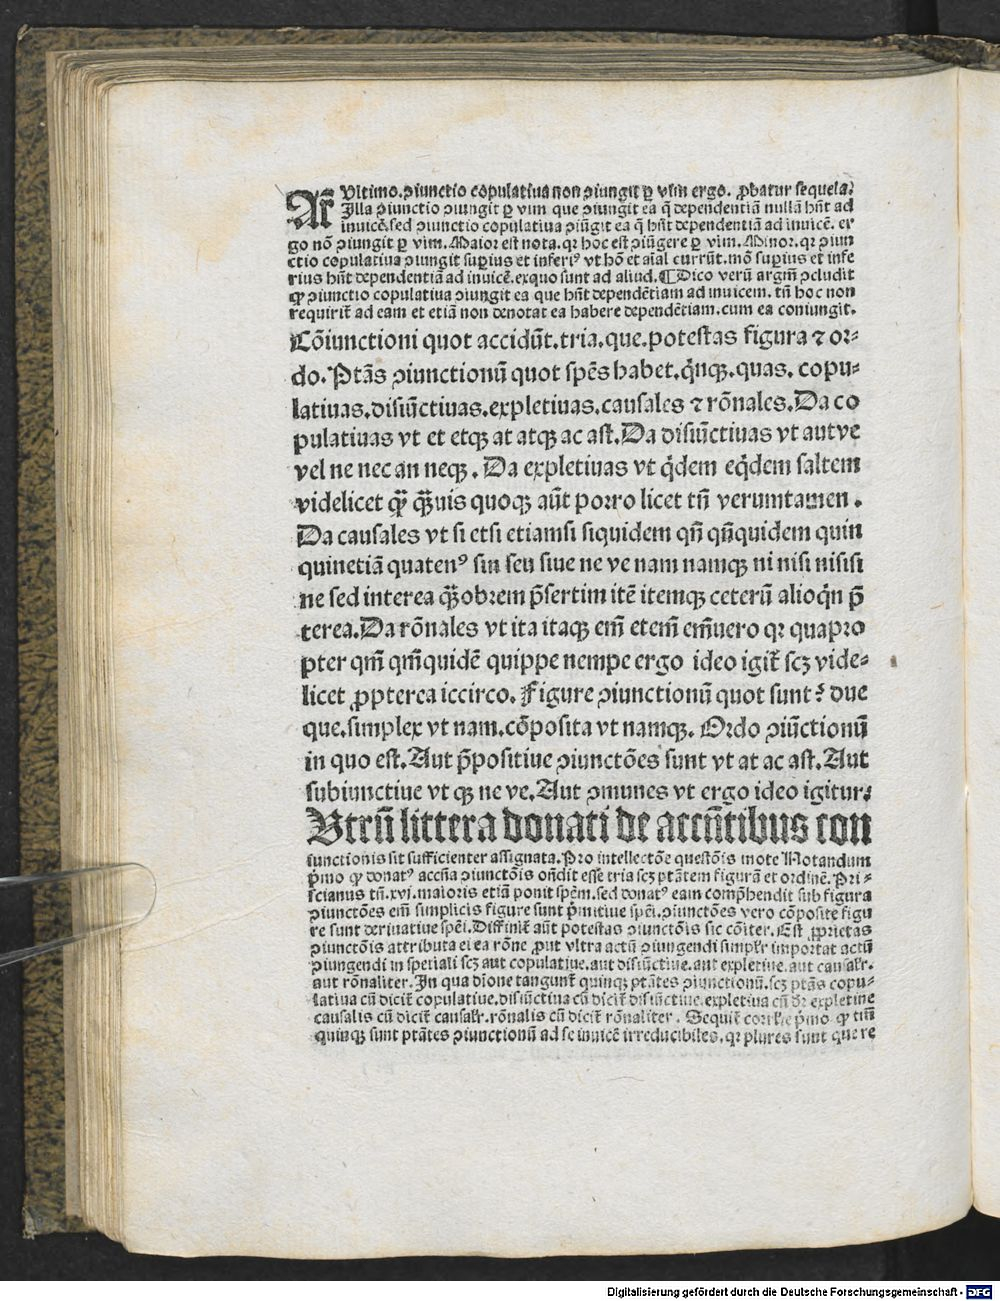 Ar̄ Ultimo. ꝯiunctio copulatiua non ꝯiungit ꝑ vīm ergo. ꝓbatur sequela.
Illa ꝯiunctio ꝯiungit ꝑ vīm que ꝯiungit ea q̄ dependentiā nullā hn̄t ad
inuicē. sed ꝯiunctio copulatiua ꝯiūgit ea q̄ hn̄t dependentiā ad inuicē. er
go nō ꝯiungit ꝑ vim. Maior est nota. qꝛ hoc est ꝯiūgere ꝑ vim. Minor. qꝛ ꝯiun
ctio copulatiua ꝯiungit suꝑius et inferiꝰ vt hō et aīal currūt. mō suꝑius et infe
rius hn̄t dependentiā ad inuicē. exquo sunt ad aliud. ¶ Dico verū argm̄ ꝯcludit
ꝙ ꝯiunctio copulatiua ꝯiungit ea que hn̄t dependētiam ad inuicem. tn̄ hoc non
requirit̄ ad eam et etiā non denotat ea habere dependētiam. cum ea coniungit.
Cōiunctioni quot accidūt. tria. que. potestas figura ⁊ or⸗
do. Ptās ꝯiunctionū quot spēs habet. qͥnqꝫ. quas. copu⸗
latiuas. disiūctiuas. expletiuas. causales ⁊ rōnales. Da co
pulatiuas vt et etqꝫ at atqꝫ ac ast. Da disiūctiuas vt aut ve
vel ne nec an neqꝫ. Da expletiuas vt qͥdem eqͥdem saltem
videlicet qͣꝫ qͣꝫuis quoqꝫ aūt porro licet tn̄ verumtamen.
Da causales vt si etsi etiamsi siquidem qn̄ qn̄quidem quin
quinetiā quatenꝰ sin seu siue ne ve nam namqꝫ ni nisi nisisi
ne sed interea qͣꝫobrem p̄sertim itē itemqꝫ ceterū alioqͥn p̄
terea. Da rōnales vt ita itaqꝫ em̄ etem̄ em̄uero qꝛ quapro
pter qm̄ qm̄quidē quippe nempe ergo ideo igit̄ scꝫ vide⸗
licet ꝓpterea iccirco. Figure ꝯiunctionū quot sunt? due
que. simplex vt nam. cōposita vt namqꝫ. Ordo ꝯiūctionū
in quo est. Aut p̄positiue ꝯiunctōes sunt vt at ac ast. Aut
subiunctiue vt qꝫ ne ve. Aut ꝯmunes vt ergo ideo igitur.
Utrū littera donati de accn̄tibus con
iunctionis sit sufficienter assignata. Pro intellectōe questōis mote Notandum
p̄mo ꝙ donatꝰ accn̄a ꝯiunctōis on̄dit esse tria scꝫ ptātem figurā et ordinē. Pri⸗
scianus tn̄. xvj. maioris etiā ponit spēm. sed donatꝰ eam comp̄hendit sub figura
ꝯiunctōes em̄ simplicis figure sunt p̄mitiue spēi. ꝯiunctōes vero cōposite figu
re sunt deriuatiue spēi. Diffinit̄ aūt potestas ꝯiunctōis sic cōiter. Est ꝓprietas
ꝯiunctōis attributa ei ea rōne ꝓut vltra actū ꝯiungendi simplr̄ importat actū
ꝯiungendi in speciali scꝫ aut copulatiue. aut disiūctiue. aut expletiue. aut causalr̄.
aut rōnaliter. In qua dīone tangunt̄ quinqꝫ ptātes ꝯiunctionū. scꝫ ptās copu⸗
latiua cū dicit̄ copulatiue. disiūctiua cū dicit̄ disiūctiue. expletiua cū dr̄ expletiue
causalis cū dicit̄ causalr̄. rōnalis cū dicit̄ rōnaliter. Sequit̄ p̄mo ꝙ tm̄
quinqꝫ sunt ptātes ꝯiunctionū ad se inuicē irreducibiles. qꝛ plures sunt que re
Digitalisierung gefördert durch die Deutsche Forschungsgemeinschaft - DFG